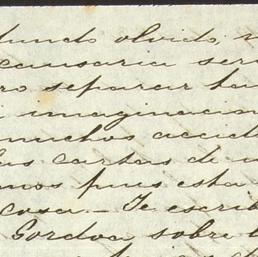 fundo olvido, n
causaria ser
ro separar ha
imaginacion
muchos accid
las cartas de u
mos pues esta
cosa.- Te escrib
Gordoa sobre l